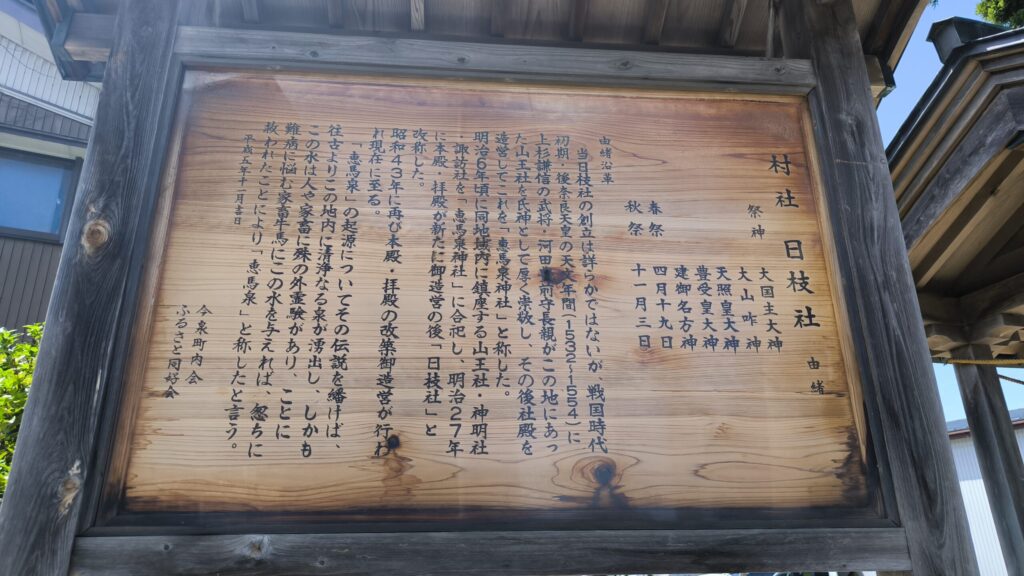 村社 日枝社 由緒
祭神
大国主大神
大山咋大神
天照皇大神
豊受皇大神
建御名方神
春祭 四月十九日
秋祭 十一月三日
由緒沿革
当日枝社の創立は詳らかではないが、戦国時代
初期、後奈良天皇の天文年間(1532~1554)に
上杉謙信の武将・河田豊前守長親がこの地にあっ
た山王社を氏神として厚く崇敬し、その後社殿を
造営してこれを「恵馬泉神社」と称した。
明治6年頃に同地域内に鎮座する山王社・神明社
・諏訪社を「恵馬泉神社」に合祀し、明治27年
に本殿・拝殿が新たに御造営の後「日枝社」と
改称した。
昭和43年に再び本殿・拝殿の改築御造営が行わ
れ現在に至る。
「恵馬泉」の起源についてその伝説を繙けば、
往古よりこの地内に清浄なる泉が湧出し、しかも
この水は人々家畜に殊の外霊験があり、ことに
難病に悩む家畜牛馬にこの水を与えれば、忽ちに
救われたことにより「恵馬泉」と称したと言う。
平成五年十一月吉日
今泉町内会
ふるさと同好会